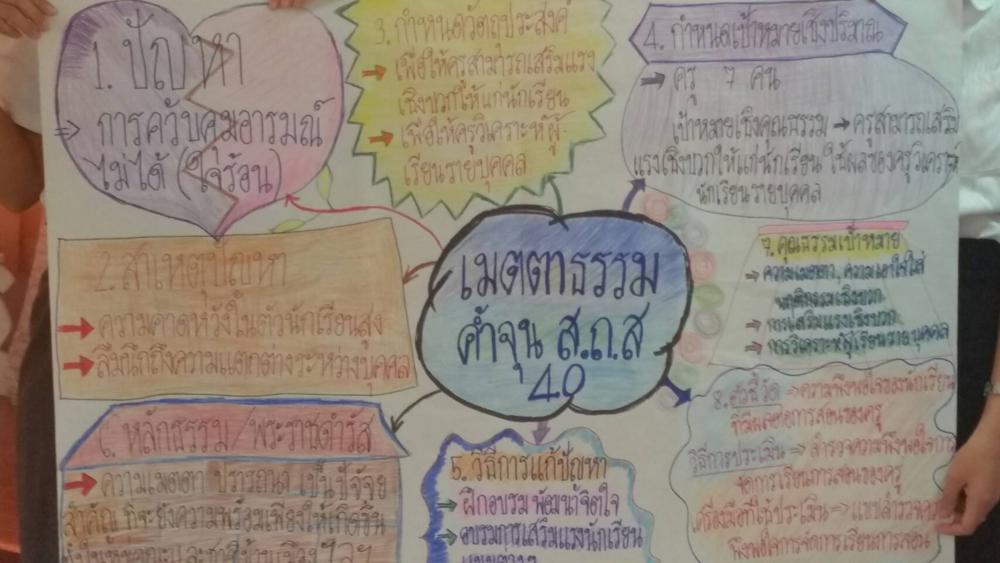 1. ปัญหา
⇒ การควับคุมอารมณ์
ไม่ได้ (ใจร้อน)
2. สาเหตุปัญหา
→ ความคาดหวังในตัวนักเรียนสูง
→ ลืมนึกถึงความแตกต่างระหว่างบุคคล
3. กำหนดวัตถุประสงค์
→ เพื่อให้ครูสามารถเสริมแรง
เชิงบวกให้แก่นักเรียน
→ เพื่อให้ครูวิเคราะห์ผู้-
เรียนรายบุคคล
4. กำหนดเป้าหมายเชิงปริมาณ
→ ครู 7 คน
เป้าหมายเชิงคุณธรรม → ครูสามารถเสริม
แรงเชิงบวกให้แก่นักเรียน ให้ผลของครูวิเคราะห์
นักเรียนรายบุคคล
เมตตาธรรม
ค้ำจุน ส.ถ.ส
4.0
5. วิธีการแก้ปัญหา
→ ฝึกอบรม พัฒนาจิตใจ
→ อบรมการเสริมแรงนักเรียน
6. หลักธรรม/พระราชดำรัส
→ ความเมตตา ปรารถนาดี เป็นปัจจัย
สำคัญ ที่จะยังความพร้อมเพียงให้เกิดขึ้น
7. คุณธรรมเป้าหมาย
→ ความเมตตา, ความเอาใจใส่
พฤติกรรมเชิงบวก
→ การเสริมแรงเชิงบวก
→ การวิเคราะห์ผู้เรียนรายบุคคล
8. ตัวชี้วัด ⇒ ความพึงพอใจของนักเรียน
ที่มีผลต่อการสอนของครู
วิธีการประเมิน ⇒ สำรวจความพึงพอใจการ
จัดการเรียนการสอนของครู
เครื่องมือที่ใช้ประเมิน ⇒ แบบสำรวจความ
พึงพอใจการจัดการเรียนการสอน